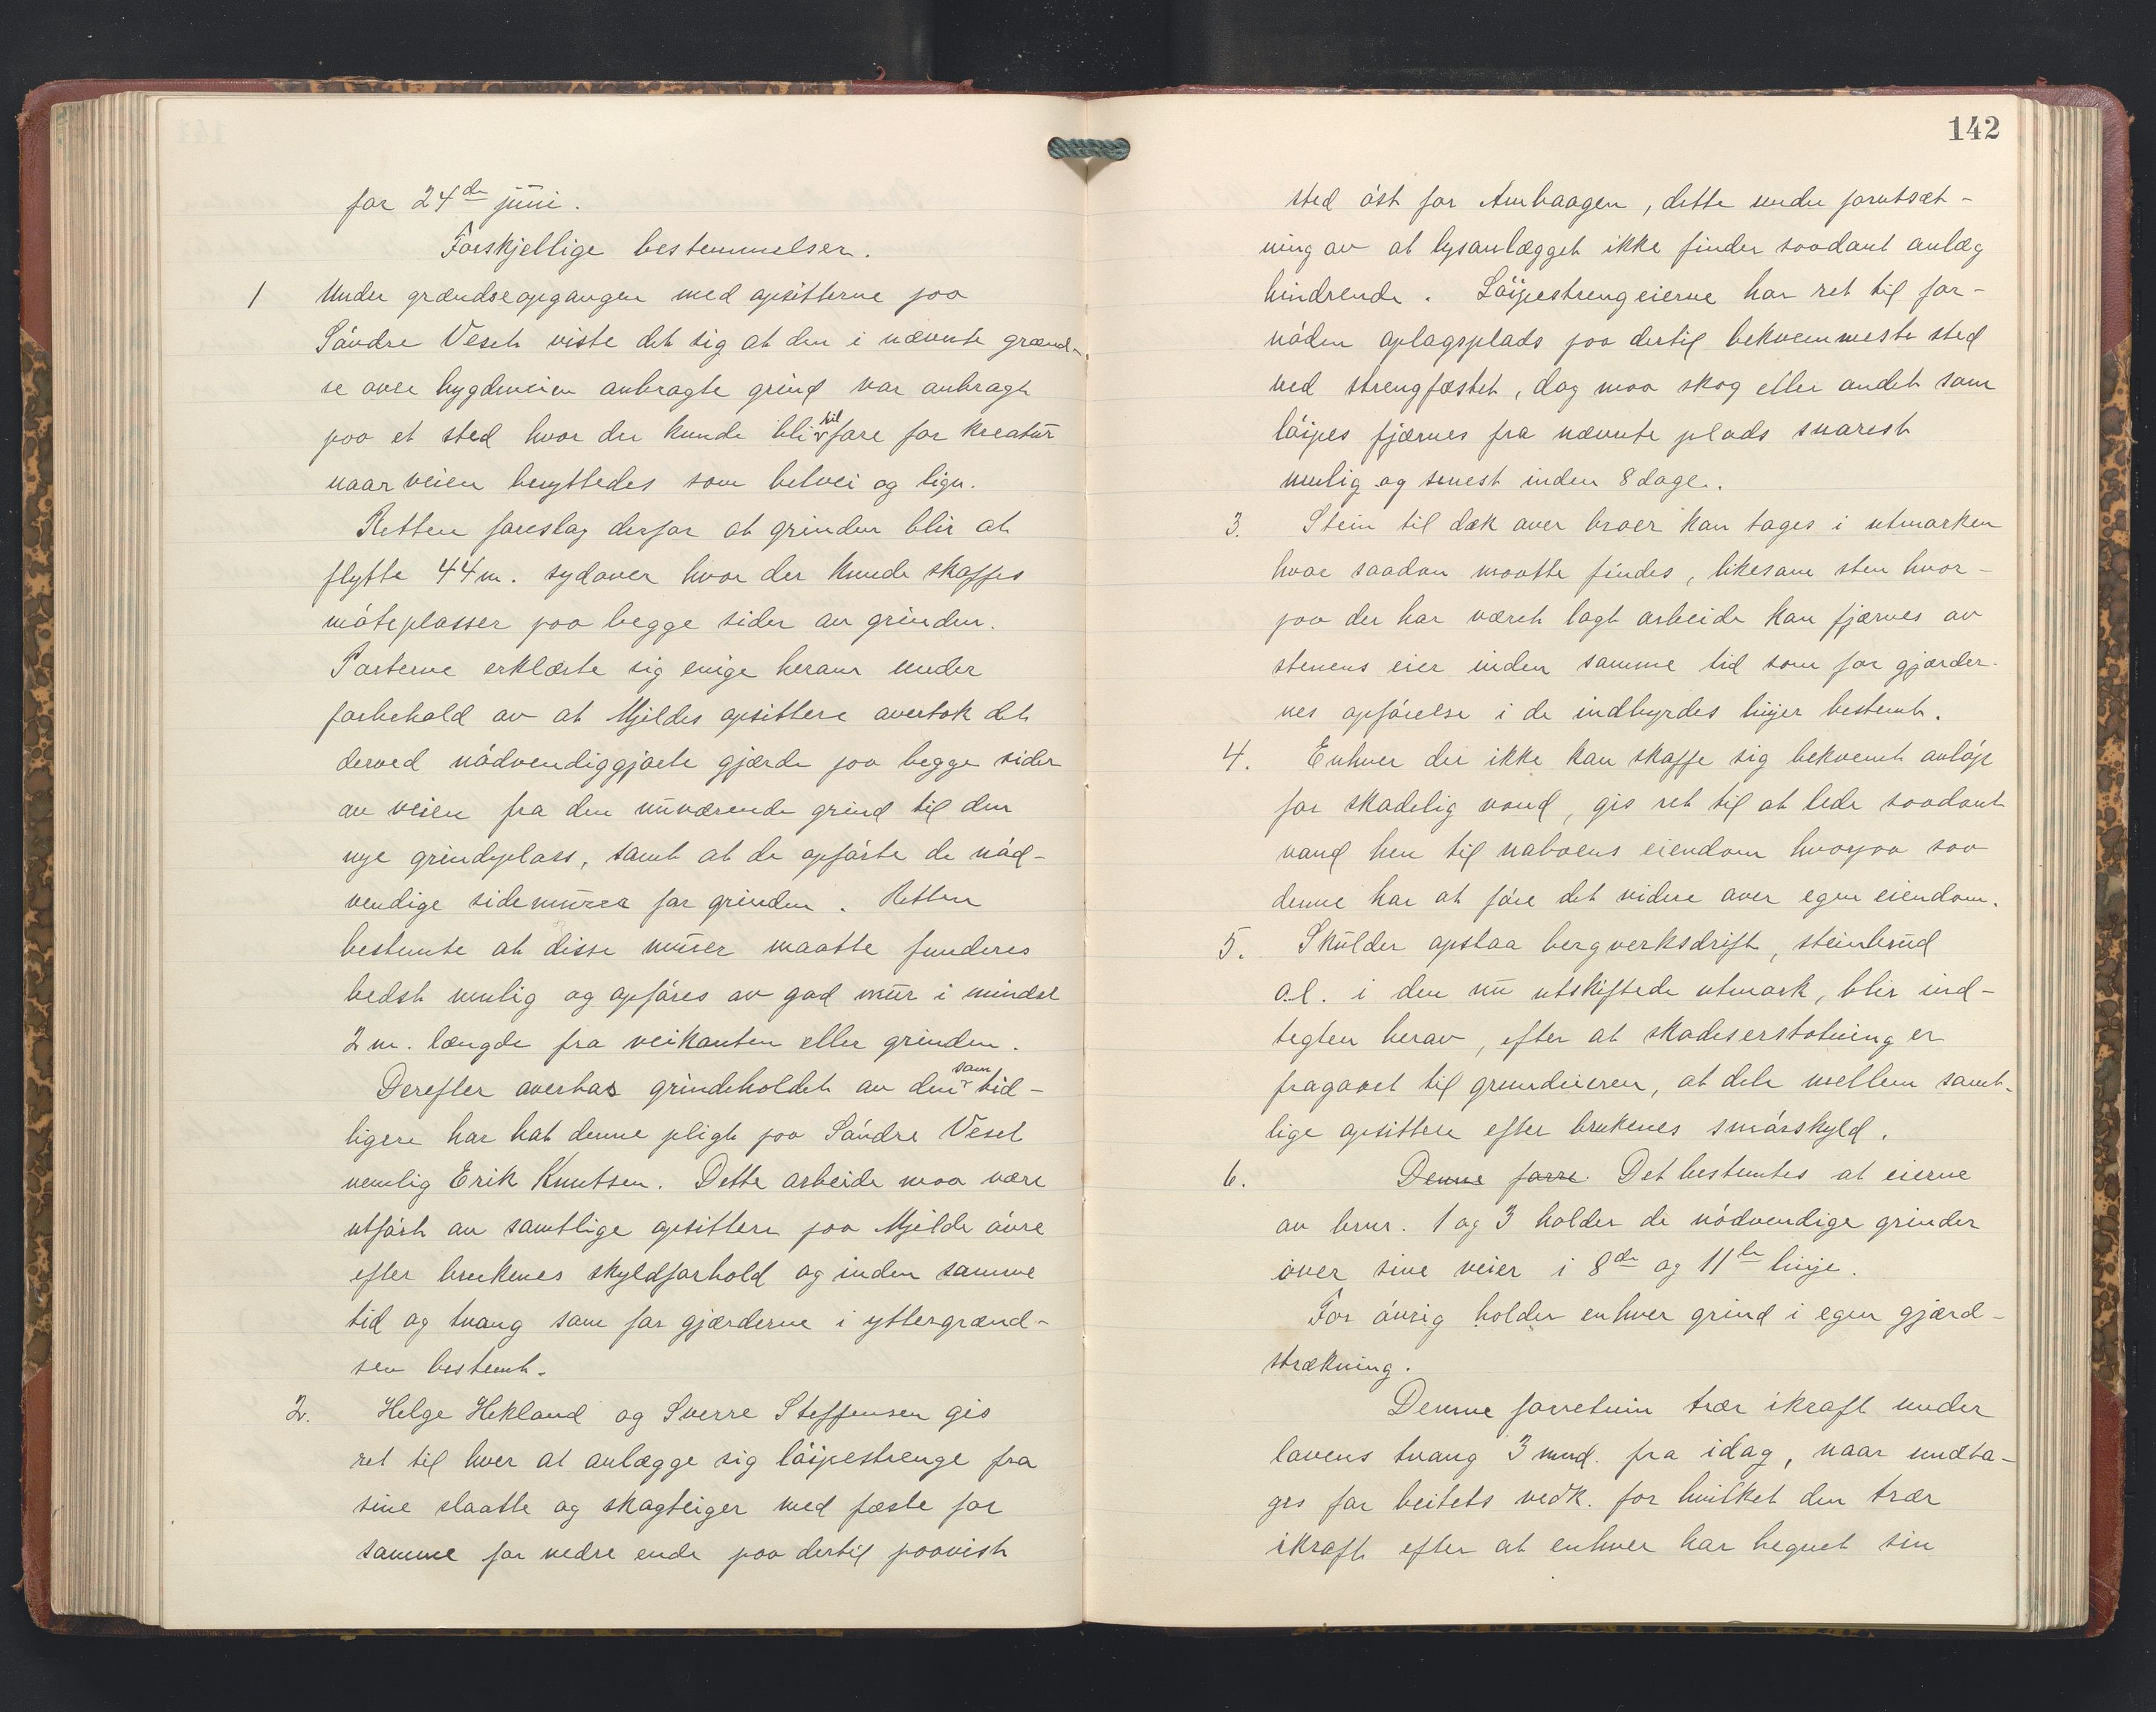 for 24de juni.
Forskjellige bestemmelser.
1 Under grændseopgangen med opsitterne paa
Søndre Veset viste det sig at den i nævnte grænd-
se over bygdeveien anbragte grind var anbragt
paa et sted hvor der kunde bli til fare for kreatur
naar veien benyttedes som belvei og lign.
Retten foreslog derfor at grinden blir at
flytte 44 m. sydover hvor der kunde skaffes
møteplasser paa begge sider av grinden.
Parterne erklærte sig enige heraur under
forbehold av at Mjeldes opsittere overtok det
derved nødvendiggjorte gjærde paa begge sider
av veien fra den nuværende grind til den
nye grindeplass, samt at de opførte de nød-
vendige sidemurer for grinden. Retten
bestemte at disse murer maatte funderes
bedst mulig og opføres av god mur i mindst
2 m. længde fra veikanten eller grinden.
Derefter overtas grindeholdet av den som tid-
ligere har hat denne pligt paa Søndre Veset
nemlig Erik Knutsen. Dette arbeide maa være
utført av samtlige opsittere paa Mjelde øvre
efter brukenes skyldforhold og inden samme
tid og tvang som for gjærderne i yttergrænd-
sen bestemt.
2. Helge Hekland og Sverre Steffensen gis
ret til hver at anlægge sig løipestrenge fra
sine slaatte og skogteiger med fæste for
samme for nedre ende paa dertil paavist
142
sted øst for Aurhaagen, dette under forutsæt-
ning av at lysanlægget ikke finder saadant anlæg
hindrende. Løipestrengeierne har ret til for-
nøden oplagsplads paa dertil bekvemmeste sted
ved strengfæstet, dog maa skog eller andet som
løipes fjærnes fra nævnte plads snarest
mulig og senest inden 8 dage.
3. Stein til dæk over broer kan tages i utmarken
hvor saadan maatte findes, likesom sten hvor-
paa der har været lagt arbeide kan fjærnes av
stenens eier inden samme tid som for gjærder-
nes opførelse i de indbyrdes linjer bestemt.
4. Enhver der ikke kan skaffe sig bekvemt avløp
for skadelig vand, gis ret til at lede saadant
vand hen til naboens eiendom hvorpaa saa
denne har at føre det videre over egen eiendom.
5. Skulder opstaa bergverksdrift, steinbrud
o.l. i den nu utskiftede utmark, blir ind-
tegten herav, efter at skadeserstatning er
fragaaet til grundeieren, at dele mellem samt-
lige opsittere efter brukenes smørskyld.
6. Denne forre. Det bestemtes at eierne
av brnr. 1 og 3 holder de nødvendige grinder
over sine veier i 8de og 11te linje.
For øvrig holder enhver grind i egen gjærd-
strækning.
Denne forretnin trær ikraft under
lovens tvang 3 mnd. fra idag, naar undta-
ges for beitets vedk. for hvilket den trær
ikraft efter at enhver har hegnet sin